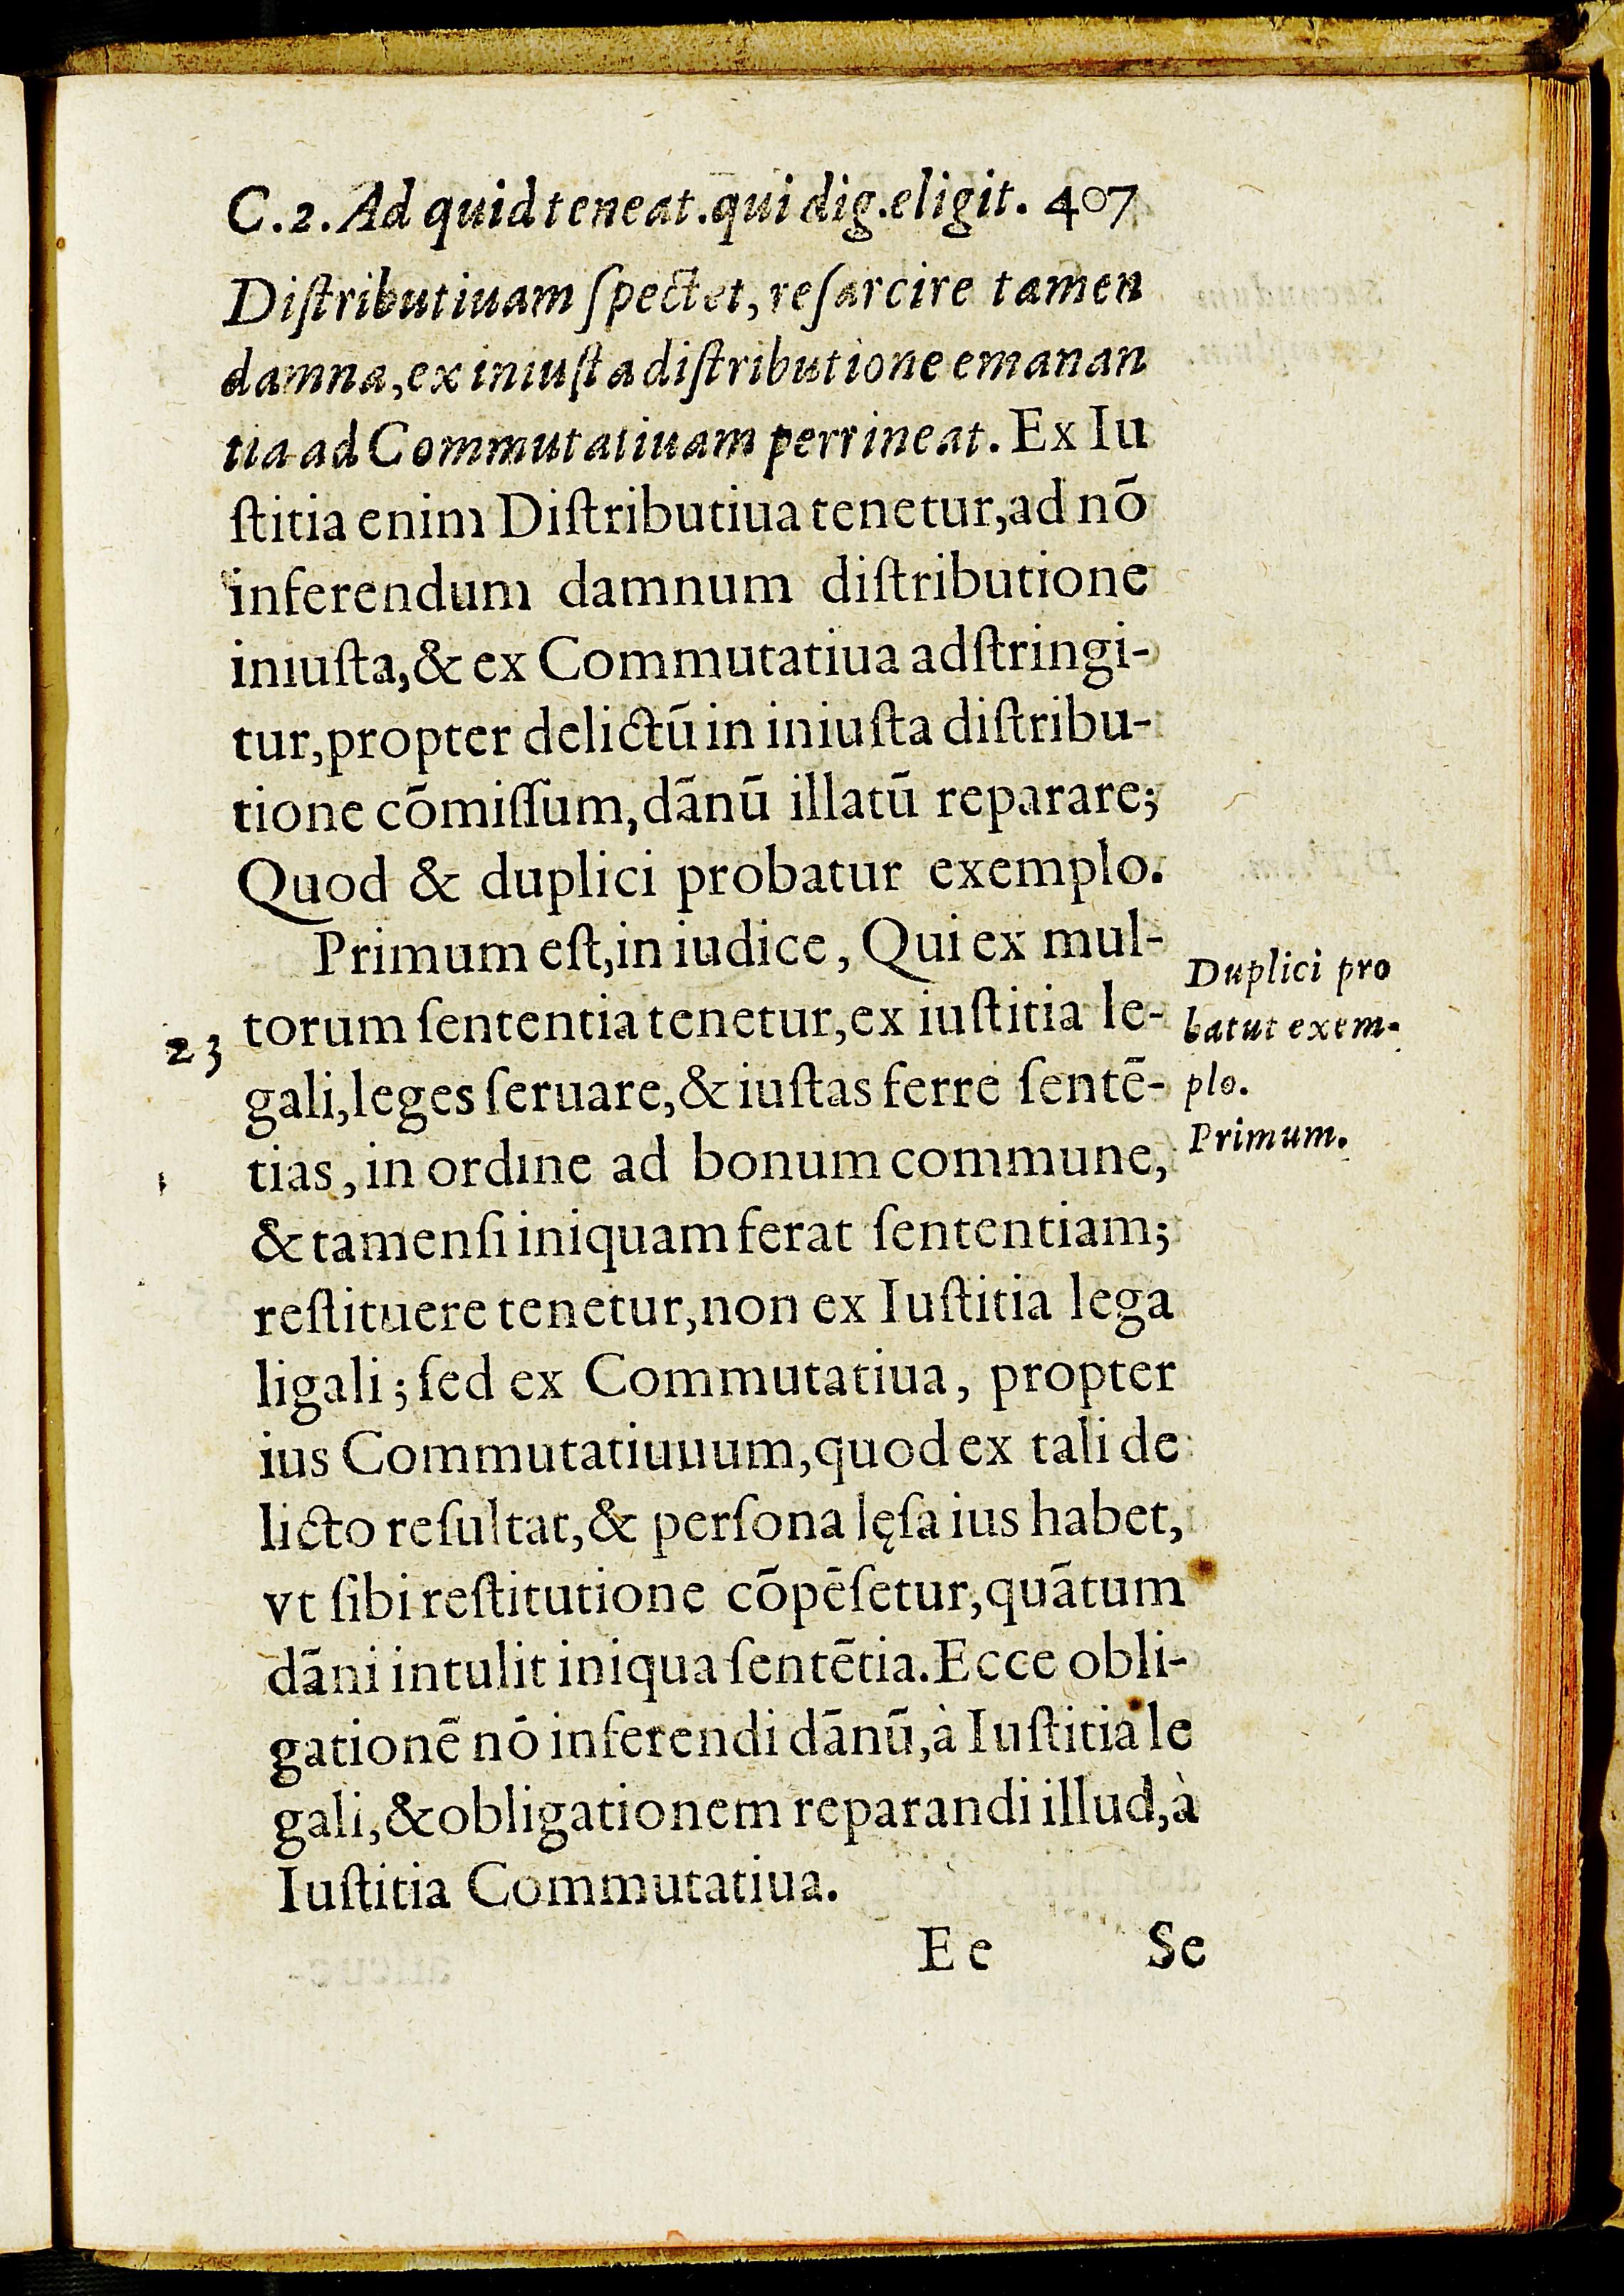 C.2. Ad quid teneat. qui dig. eligit. 407
Diſtributiuam ſpectet, reſarcire tamen
damna, ex iniuſta diſtributione emanan
tia ad Commutatiuam perrineat. Ex Iu
ſtitia enim Diſtributiua tenetur, ad nō
inferendum damnum diſtributione
iniuſta, & ex Commutatiua adſtringi-
tur, propter delictū in iniuſta diſtribu-
tione cōmiſſum, dānū illatū reparare;
Quod & duplici probatur exemplo.
Primum eſt, in iudice, Qui ex mul-
23 torum ſententia tenetur, ex iuſtitia le-
gali, leges ſeruare, & iuſtas ferre ſentē-
tias, in ordine ad bonum commune,
& tamenſi iniquam ferat ſententiam;
reſtituere tenetur, non ex Iuſtitia lega
ligali; ſed ex Commutatiua, propter
ius Commutatiuuum, quod ex tali de
licto reſultat, & perſona lęſa ius habet,
vt ſibi reſtitutione cōpēſetur, quātum
dāni intulit iniqua ſentētia. Ecce obli-
gationē nō inferendi dānū, à Iuſtitia le
gali, & obligationem reparandi illud, à
Iuſtitia Commutatiua.
Duplici pro
batut exem-
plo.
Primum.
Ee Se